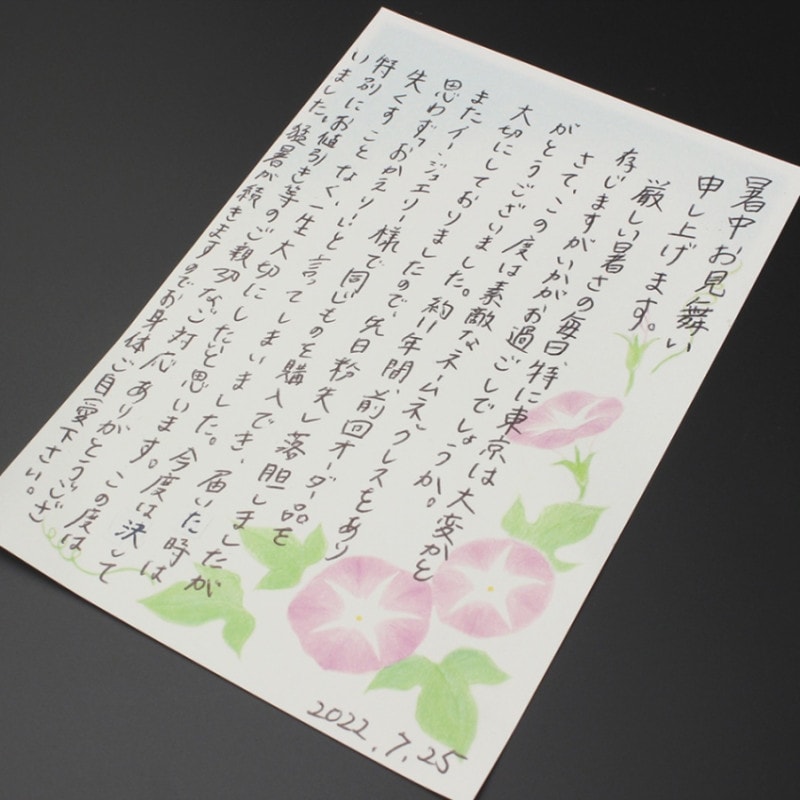 暑中お見舞い
申し上げます。
厳しい暑さの毎日、特に東京は大変かと
存じますがいかがお過ごしでしょうか。
さて、この度は素敵なネームネックレスをあり
がとうございました。約11年間、前回オーダー品を
大切にしておりましたので、先日紛失し落胆しましたが
またイー・ジュエリー様で同じものを購入でき、届いた時は
思わず"おかえりー"と言ってしまいました。今度は決して
失くすことなく、一生大切にしたいと思います。この度は
特別にお値引き等のご親切なご対応ありがとうござ
いました。猛暑が続きますのでお身体ご自愛下さい。
2022.7.25